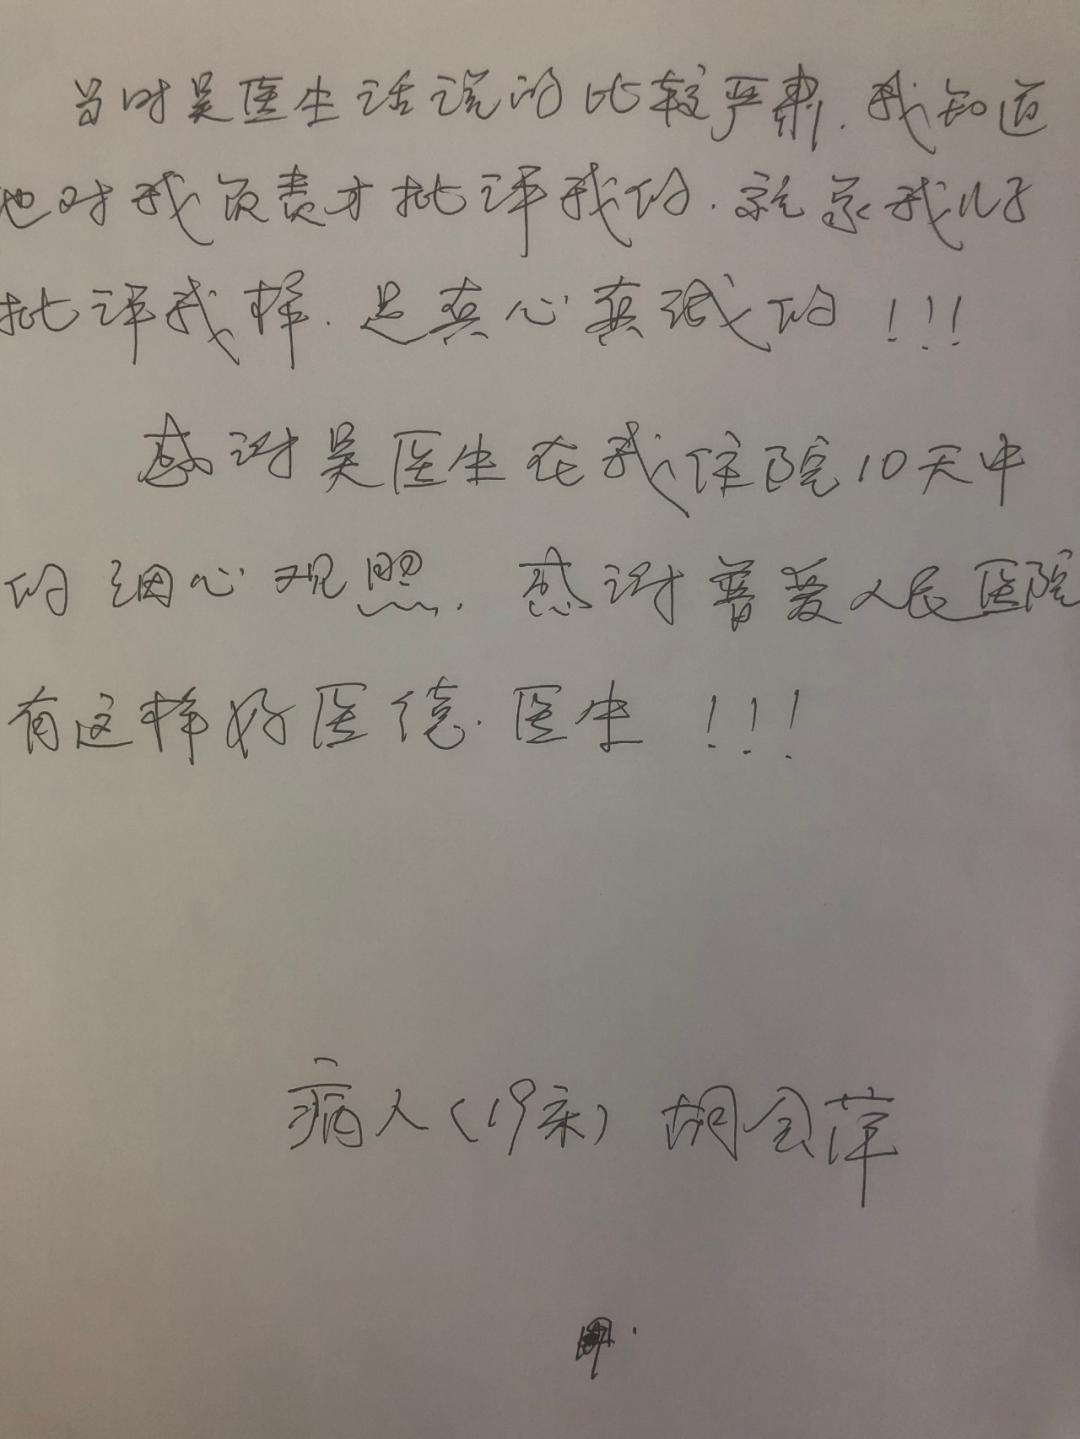 当时吴医生话说的比较严肃.我知道
他对我负责才批评我的.就象我儿子
批评我样.是真心真诚的!!!
感谢吴医生在我住院10天中
的细心观照.感谢普爱人民医院
有这样好医德.医生!!!
病人(19床)胡会萍